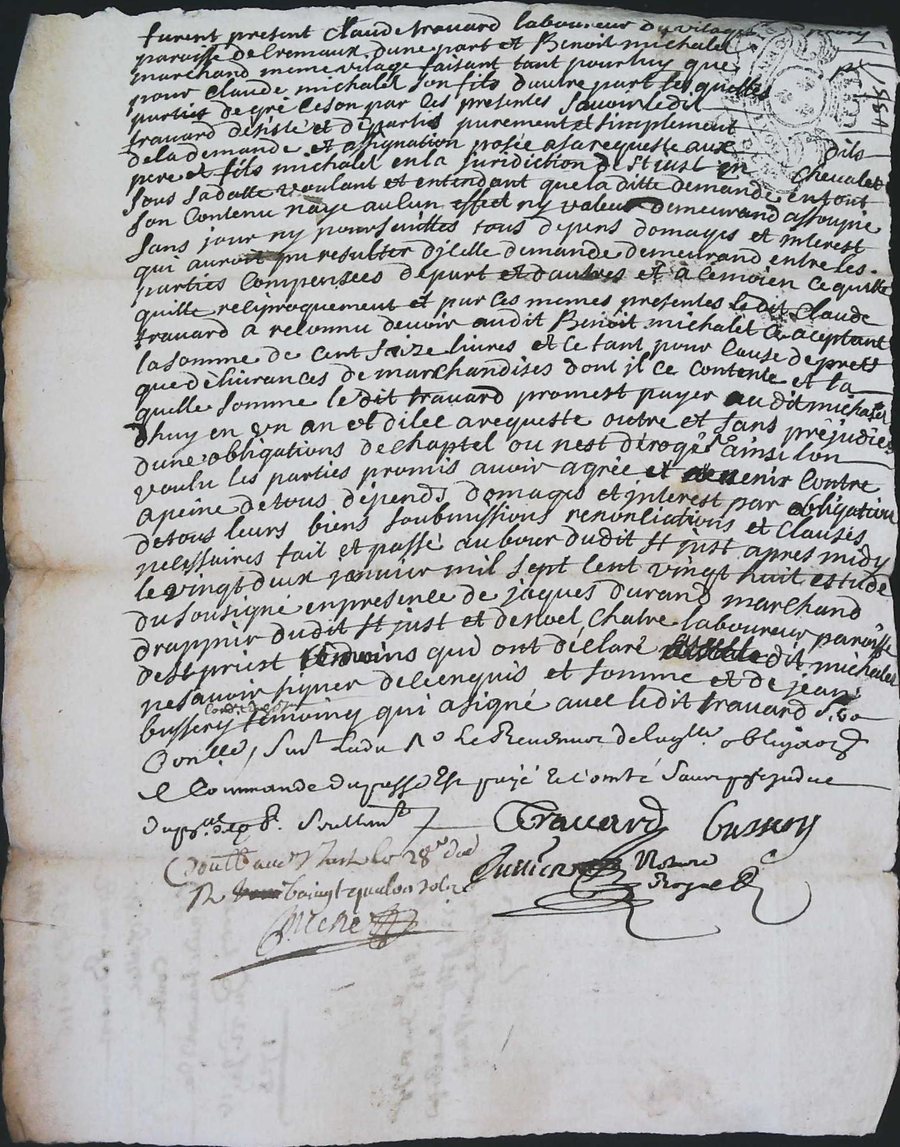 furent present Claude travard laboureur du vilage
paroisse de Cremaux dune part et Benoit michalet
marchand meme vilage faisant tant pour luy que
pour Claude michalet son fils dautre part lesquelles
parties de gré ce son par ces presentes savoir ledit
travard désisté et départis purement et simplement
de la demande et assignation posée a sa requeste aux dits
pere et fils michalet en la juridiction de St just en chevalet
sous sa datte voulant et entendant que la ditte demande en tout
son contenu naye aucun effect ny valeur demeurand assoupie
sans jour ny poursuittes tous depens domages et interest
qui auront pu resulter dicelle demande demeurand entre les
parties compensées depart et dautres et à ce moien ce quitte
quitte reciproquement et par ces memes presentes ledit Claude
travard à reconnu devoir audit Benoit michalet ce aceptant
la somme de cent saize livres et ce tant pour cause de prets
que délivrances de marchandises dont jl ce contente et la
quelle somme le dit travard promest payer audit michalet
dhuy en un an et dilec a requeste outre et sans préjudices
dune obligations de chaptel ou nest dérogé ainsi lon
voulu les parties promis avoir agrée et contre
a peine de tous dépends domages et interest par obligation
de tous leurs biens soubmissions renonciations et clauses
necissaires fait et passé au bour dudit St just apres midy
le vingt deux janvier mil sept cent vingt huit estude
du sousigné en presence de jaques durand marchand
drappier dudit St just et de noel Chatre laboureur paroisse
de St priest temoins qui ont déclaré dit michalet
ne savoir signer de ce enquis et somme et de jean
bussery temoins qui a signé avec ledit travard
obligaon
Commande du passé est payé sauf prejudice

Travard Bussery
Controllé a St Just le 28e dud
R vingt quatre sols
notaire
Royal
Michel